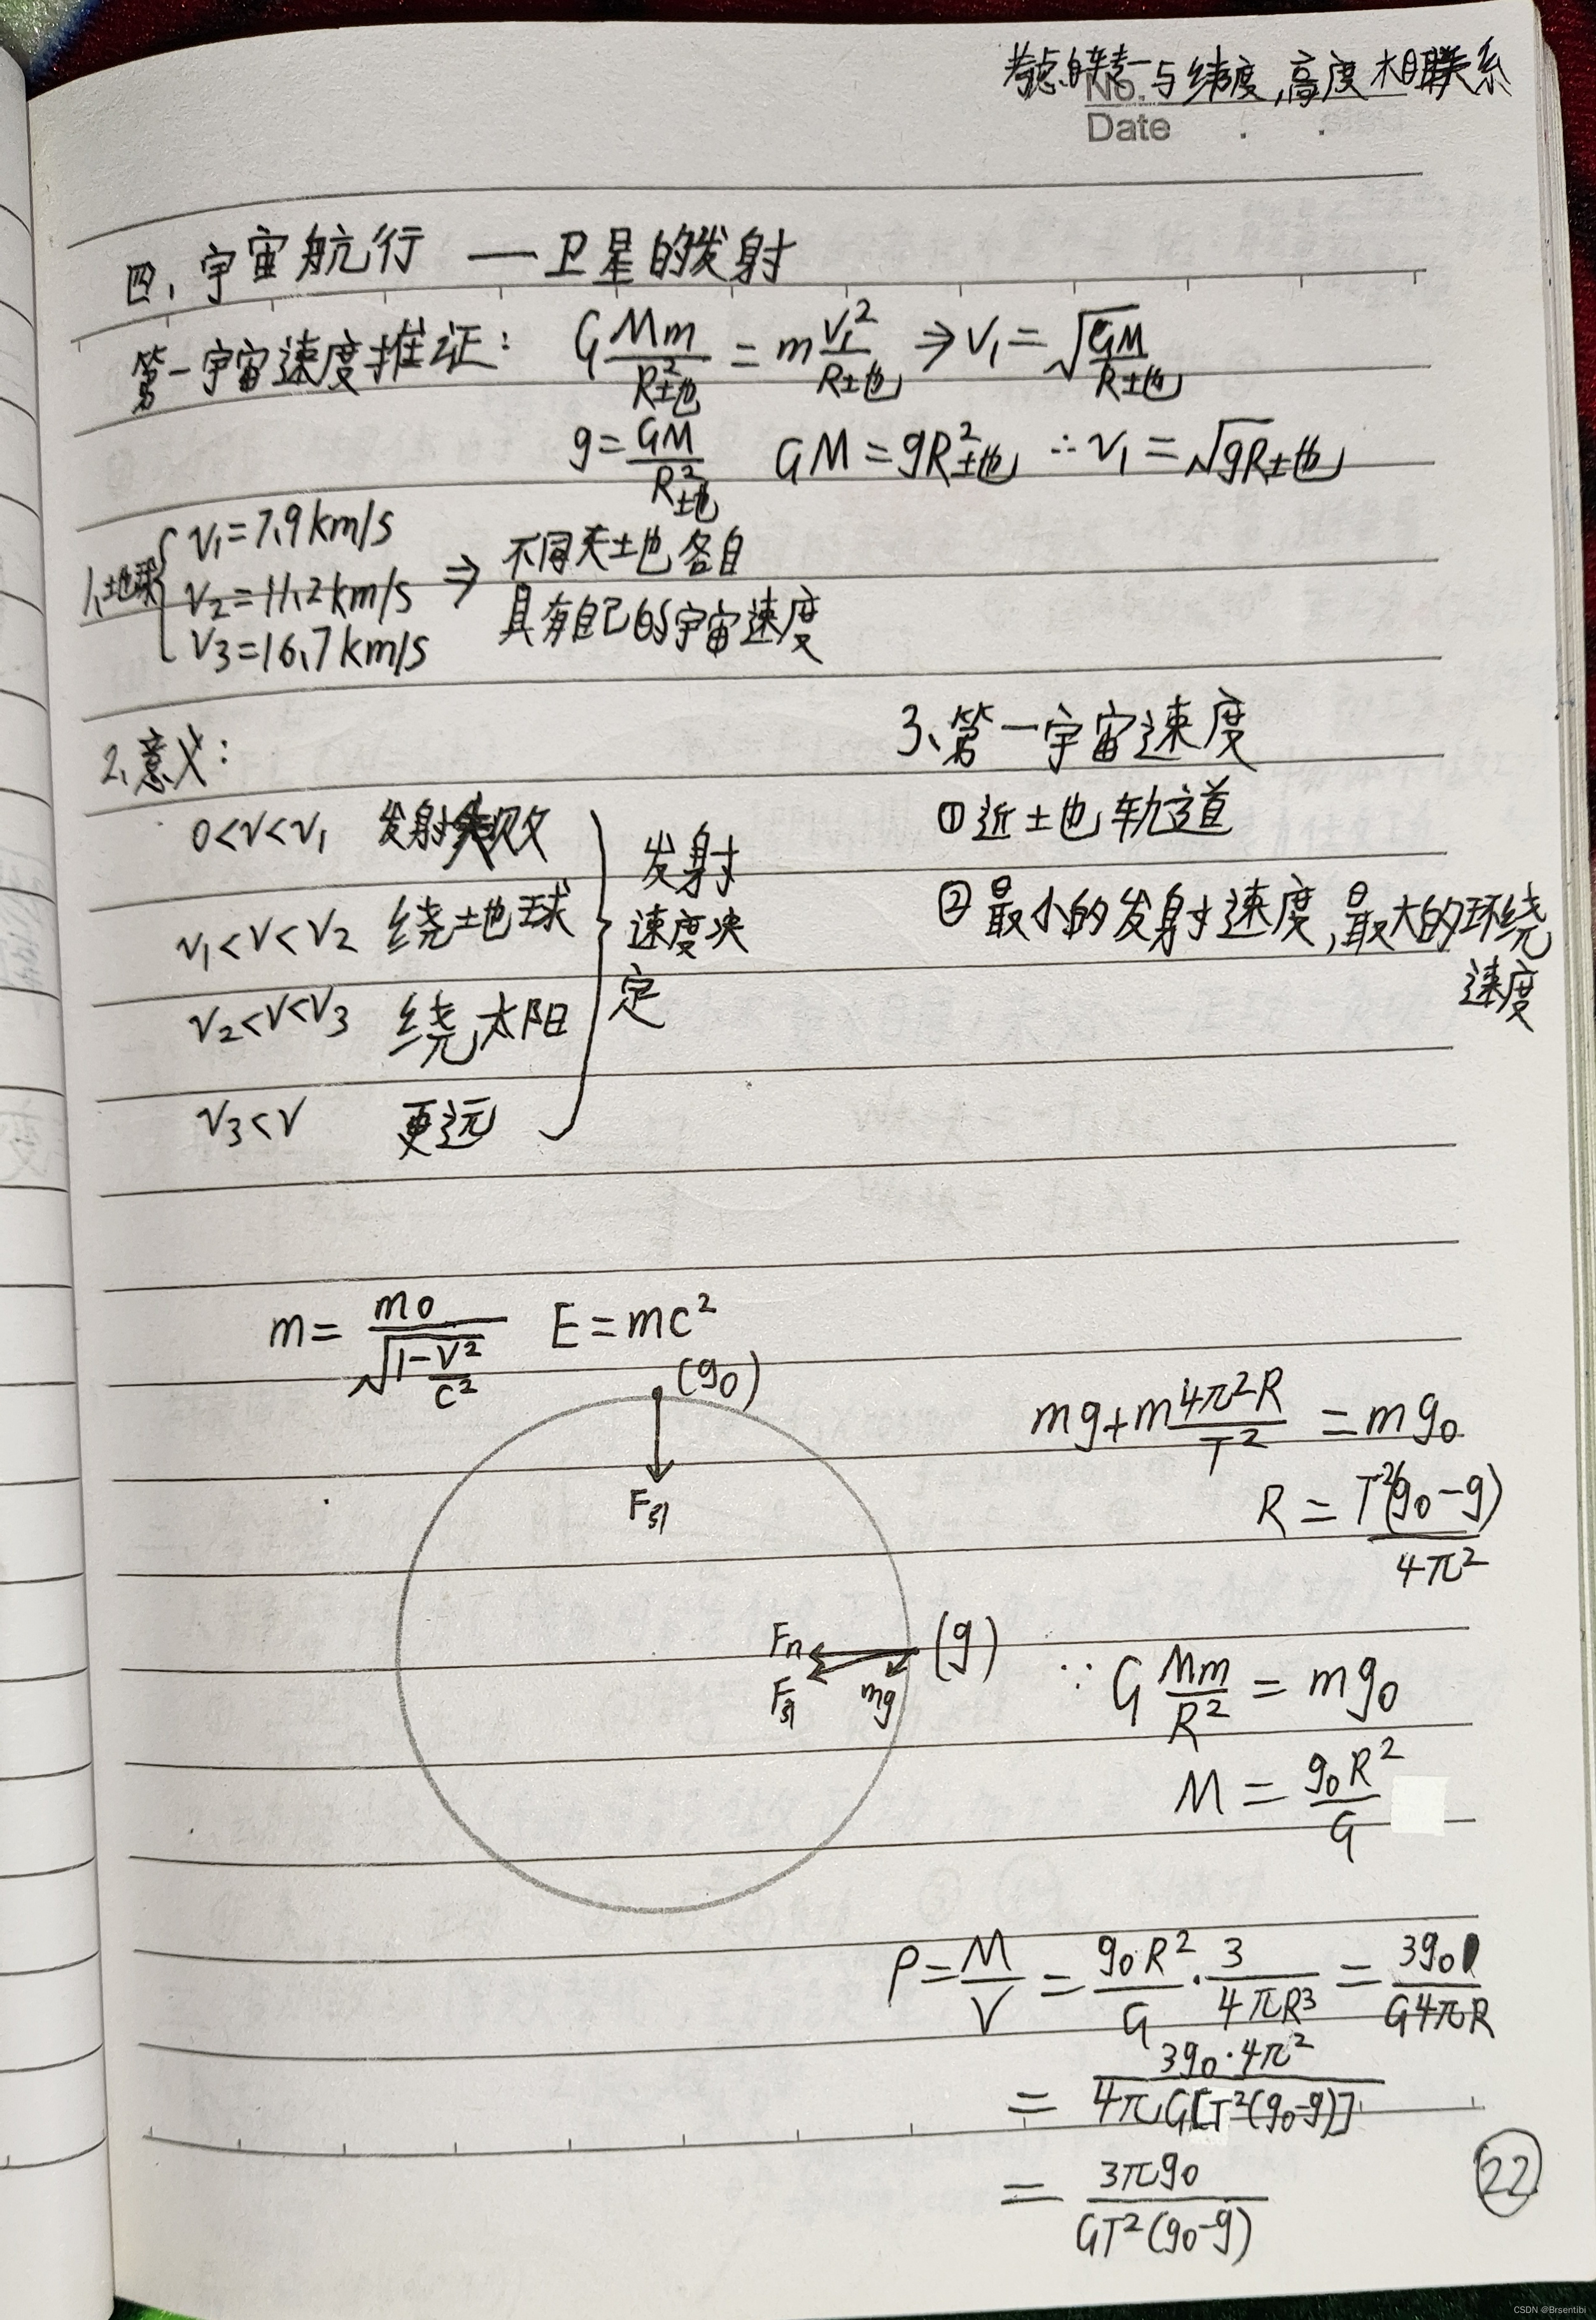 考虑自转—与纬度,高度相联系
No.
Date . .
四、宇宙航行 — 卫星的发射
第一宇宙速度推证: G Mm/R地² = m v₁²/R地 ⇒ v₁ = √(GM/R地)
g = GM/R地² GM = gR地² ∴ v₁ = √gR地
1、地球 { v₁=7.9km/s
v₂=11.2km/s ⇒ 不同天地各自
v₃=16.7km/s 具有自己的宇宙速度
2、意义:
0<v<v₁ 发射失败
v₁<v<v₂ 绕地球
v₂<v<v₃ 绕太阳
v₃<v 更远
} 发射
速度决
定
3、第一宇宙速度
① 近地轨道
② 最小的发射速度,最大的环绕
速度
m = m0/√(1-v²/c²) E = mc²
(g₀)
F引
Fn
F引
mg
(g)
mg+m 4π²R/T² = mg₀
R = T²(g₀-g)/4π²
∵ G Mm/R² = mg₀
M = g₀R²/G
ρ = M/V = g₀R²/G · 3/4πR³ = 3g₀/G4πR
= 3g₀·4π²/4πG[T²(g₀-g)]
= 3πg₀/GT²(g₀-g)
22
CSDN @Brsentibi